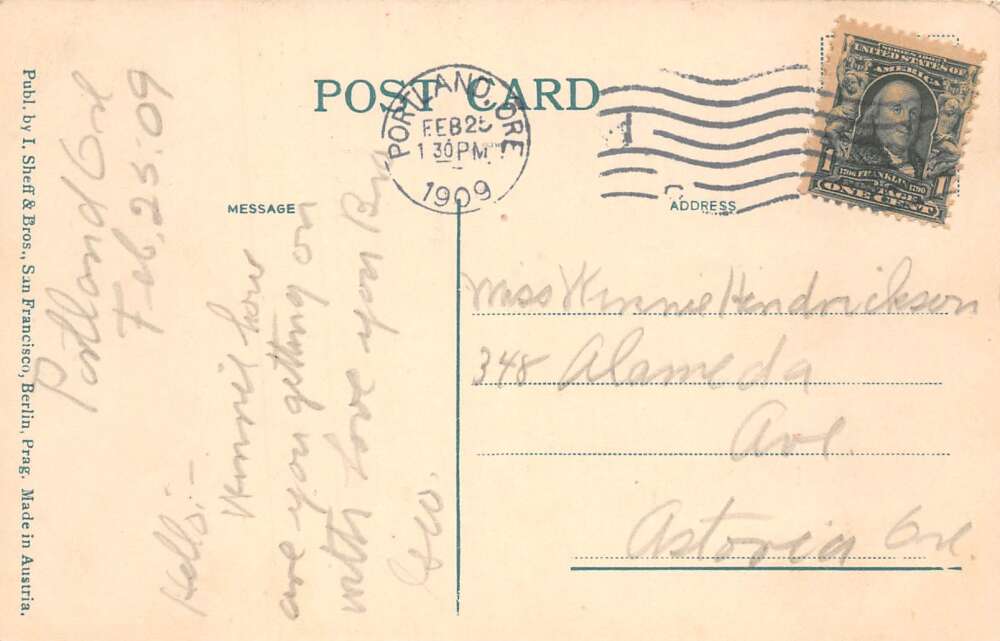 POST CARD
PORTLAND, ORE
FEB 25
1 30 PM
1909
SERIES 1902
UNITED STATES OF
AMERICA
1706 FRANKLIN 1790
POSTAGE
1 ONE CENT 1
MESSAGE
ADDRESS
Publ. by I. Sheff & Bros., San Francisco, Berlin, Prag. Made in Austria.
Portland Ore
Feb. 25-09
Hello:-
Winnie how
are you getting on
with love from Bro
Geo.
Miss Winnie Hendrickson
348 Alameda
Ave.
Astoria Ore.